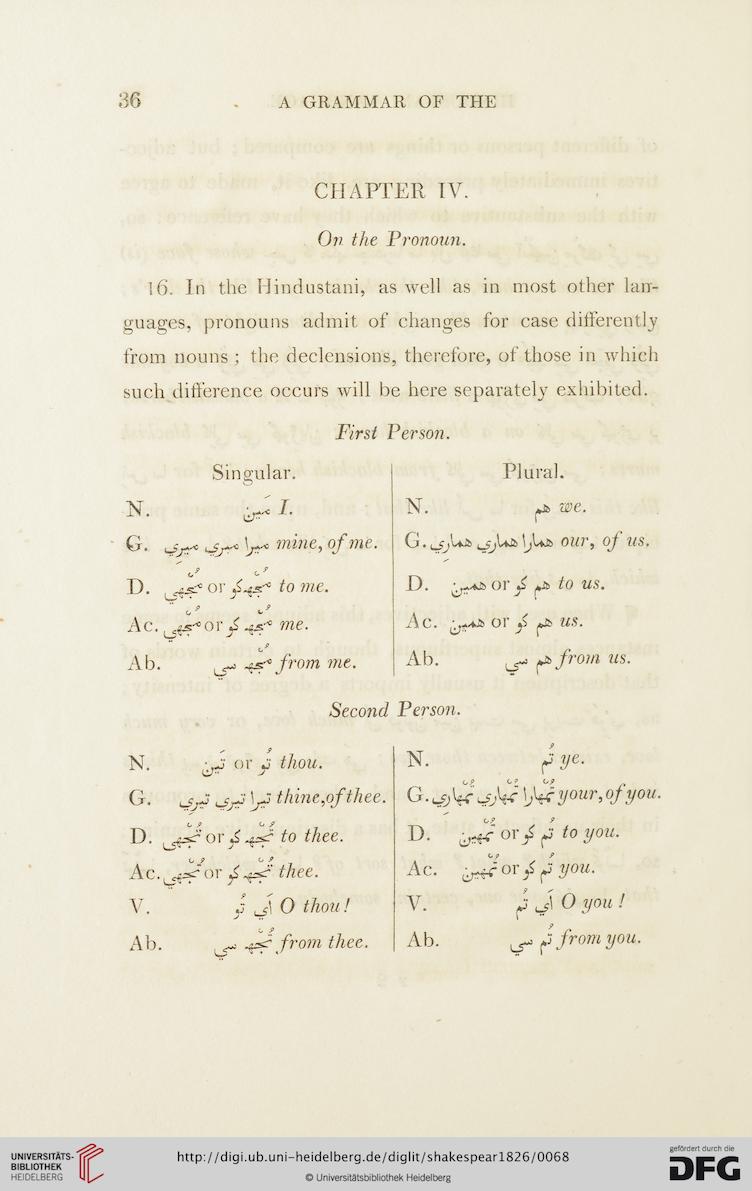 36 A GRAMMAR OF THE
CHAPTER IV.
On the Pronoun.
16. In the Hindustani, as well as in most other lan-
guages, pronouns admit of changes for case differently
from nouns ; the declensions, therefore, of those in which
such difference occurs will be here separately exhibited.
First Person.
Singular.
N. مَين I.
G. ميرا ميري ميري mine, of me.
D. مُجهْكو or مُجهْي to me.
Ac. مُجهْ كو or مُجهْي me.
Ab. مُجهْ سي from me.
Plural.
N. هم we.
G. همارا هماري هماري our, of us.
D. هم كو or همين to us.
Ac. هم كو or همين us.
Ab. هم سي from us.
Second Person.
N. تُو or تَين thou.
G. تيرا تيري تيري thine, of thee.
D. تُجهْ كو or تُجهْي to thee.
Ac. تُجهْ كو or تُجهْي thee.
V. أي تُو O thou!
Ab. تُجهْ سي from thee.
N. تُم ye.
G. تُمْهارا تُمْهاري تُمْهاري your, of you.
D. تُم كو or تُمْهين to you.
Ac. تُم كو or تُمْهين you.
V. أي تُم O you !
Ab. تُم سي from you.
UNIVERSITÄTS-
BIBLIOTHEK
HEIDELBERG
http://digi.ub.uni-heidelberg.de/diglit/shakespear1826/0068
© Universitätsbibliothek Heidelberg
gefördert durch die
DFG